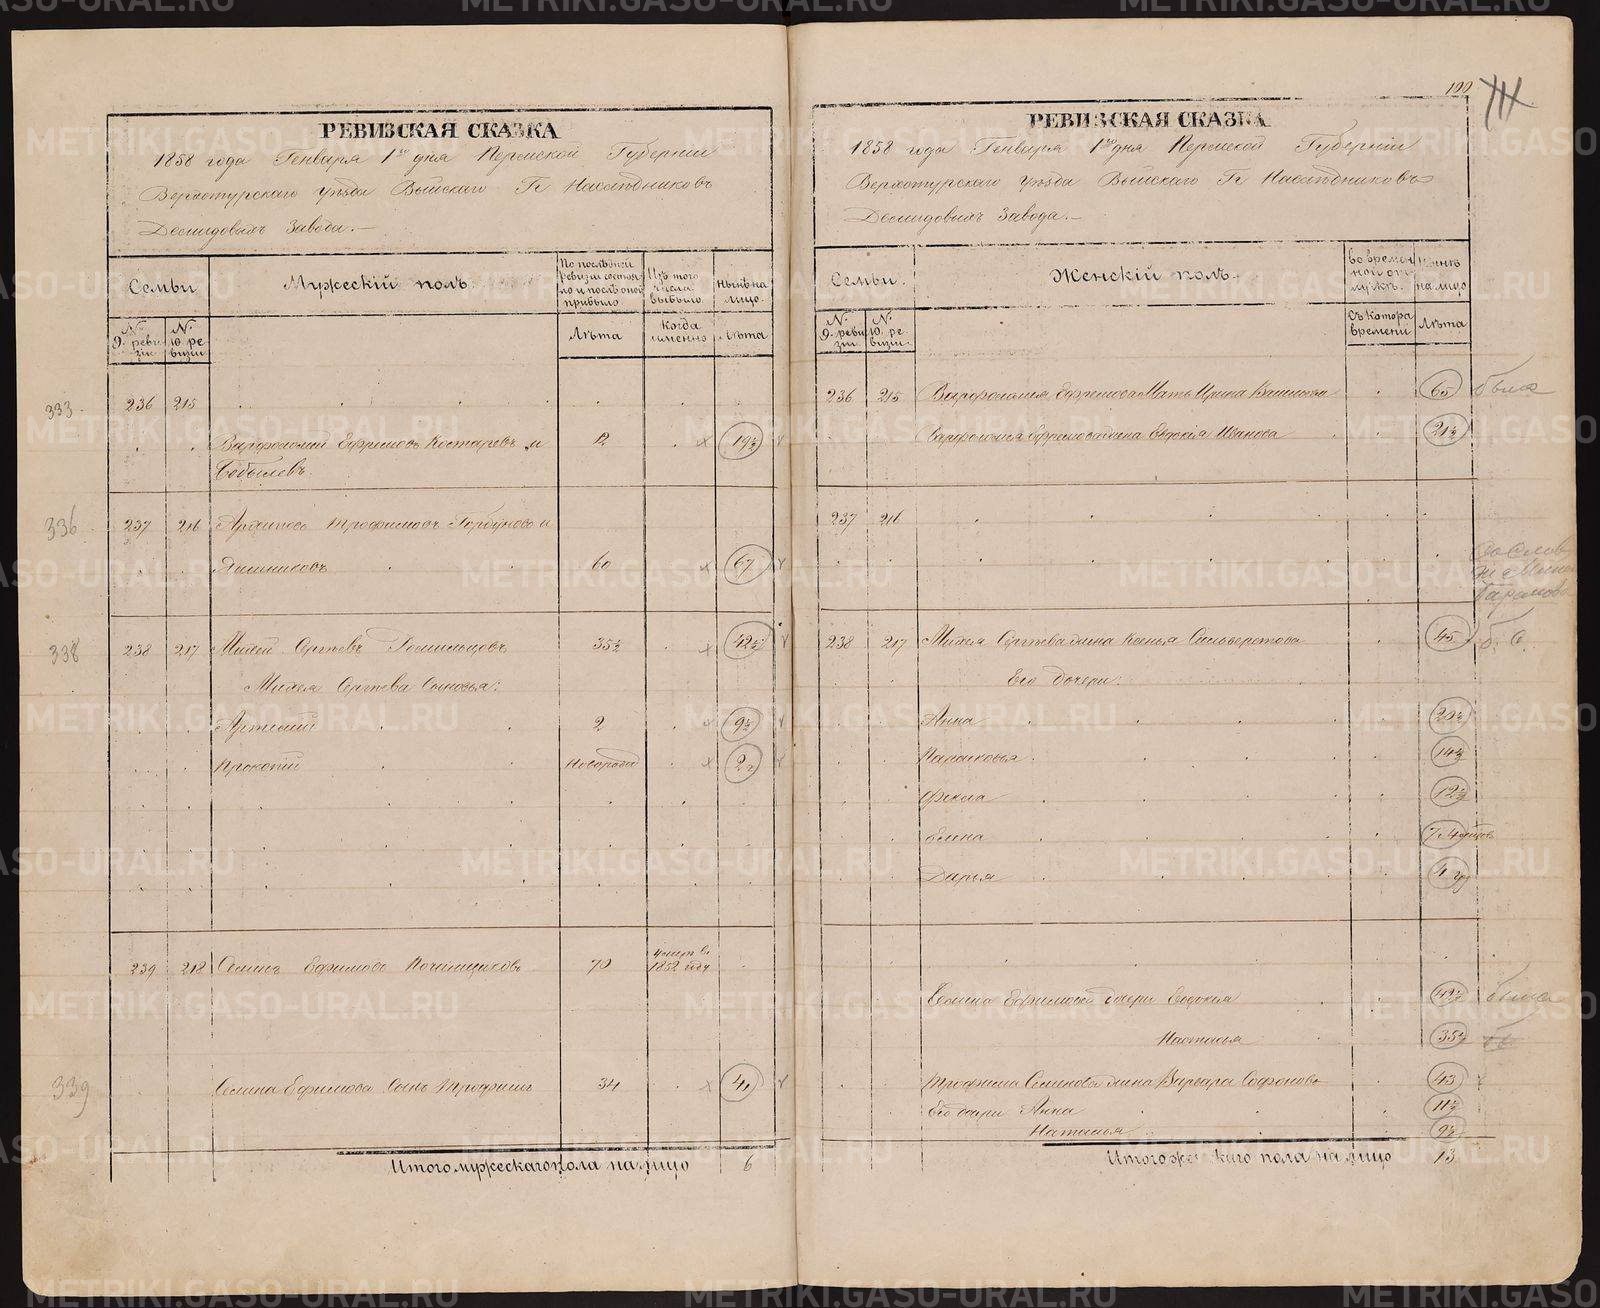 РЕВИЗСКАЯ СКАЗКА
1858 года Генваря 1го дня Пермской Губернiи
Верхотурскаго уѣзда Выйскаго Гг Наслѣдниковъ
Демидовыхъ Завода.—
Семьи
Мужескiй полъ.
По послѣдней ревизiи состояло и послѣ оной прибыло
Изъ того числа выбыло
Нынѣ на лицо.
№ 9. ревизiи
№ 10 ревизiи
Лѣта
Когда именно
Лѣта
333
236 215
Варфоломей Ефримовъ Костаревъ и 12 19½
Бобылевъ.
336 237 216 Архипъ Трофимовъ Горбуновъ и
Яшниковъ 60 67
338 238 217 Михей Сергѣевъ 35½ 42½
Михея Сергѣева Сыновья:
Артемiй 2 9½
Прокопiй Новорожд 2 г
239 218 Семенъ Ефимовъ 70 умеръ въ 1852 году
339 Семена Ефимова Сынъ Трофимъ 34 41
Итого мужескаго пола на лицо 6
100
РЕВИЗСКАЯ СКАЗКА
1858 года Генваря 1го дня Пермской Губернiи
Верхотурскаго уѣзда Выйскаго Гг Наслѣдниковъ
Демидовыхъ Завода.—
Семьи.
Женскiй полъ.
Во временной отлучкѣ.
Нынѣ на лицо
№ 9. ревизiи
№ 10. ревизiи
Съ котора времени
Лѣта
236 215 Варфоломея Ефримова Мать Ирина 65 была
Варфоломея Ефримова жена Евдокiя Иванова 21½
237 216
238 217 Михея Сергѣева жена Ксенья Сильверстова 45 б. б.
Его дочери:
Анна 20½
Парасковья 14½
Фекла 12½
Елена
Дарья 4 г
Семена Ефимова дочери Евдокья 42½ была
Настасья 35½
Трофима Семенова жена Варвара Софонова 43
Его дочери Анна 11½
Наталья 9½
Итого женскаго пола на лицо 13
METRIKI.GASO-URAL.RU